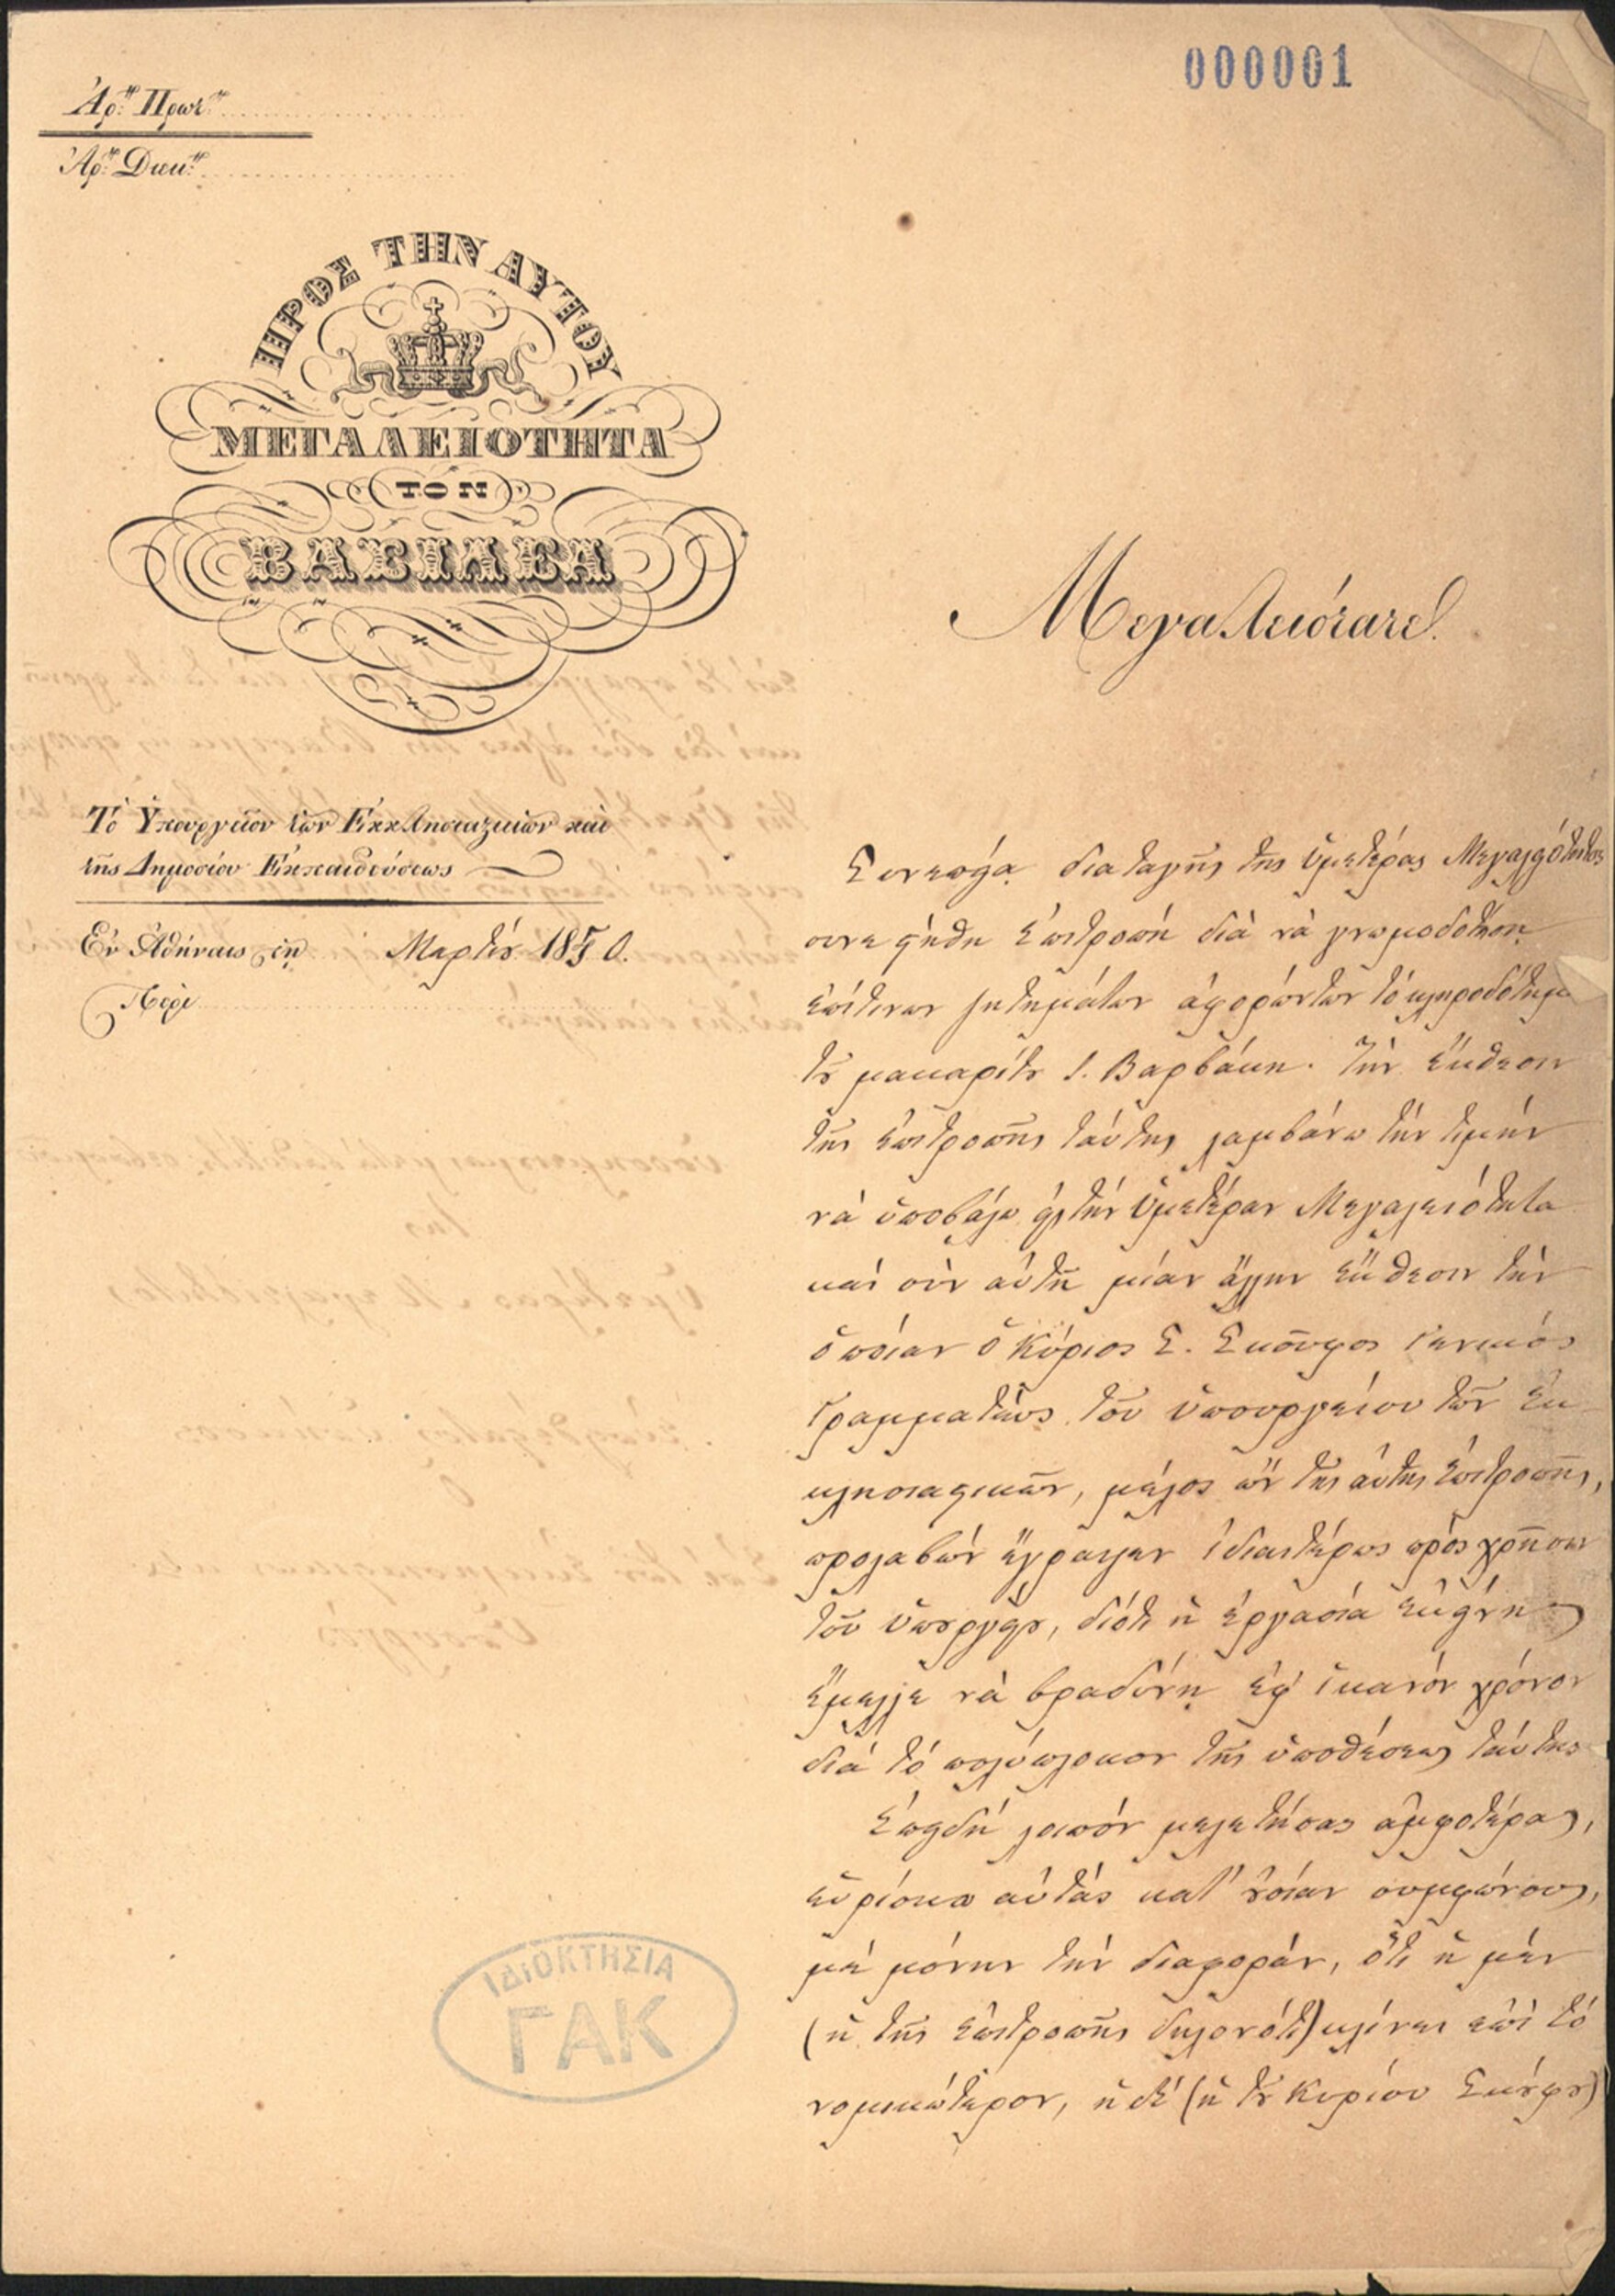 000001
Ἀρ. Πρωτ.
Ἀρ. Διεκ.
ΠΡΟΣ ΤΗΝ ΑΥΤΟΥ
ΜΕΓΑΛΕΙΟΤΗΤΑ
ΤΟΝ
ΒΑΣΙΛΕΑ
Τὸ Ὑπουργεῖον τῶν Ἐκκλησιαστικῶν καὶ
τῆς Δημοσίου Ἐκπαιδεύσεως
Ἐν Ἀθήναις τῇ Μαρτίου 1850.
Περὶ
Μεγαλειότατε!
Συνεπείᾳ διαταγῆς τῆς Ὑμετέρας Μεγαλειότητος
συνεστήθη ἐπιτροπὴ διὰ νὰ γνωμοδοτήσῃ
ἐπί τινων ζητημάτων ἀφορώντων τὸ κληροδότημα
τοῦ μακαρίτου Ι. Βαρβάκη. Τὴν ἔκθεσιν
τῆς ἐπιτροπῆς ταύτης λαμβάνω τὴν τιμὴν
νὰ ὑποβάλω εἰς τὴν Ὑμετέραν Μεγαλειότητα
καὶ σὺν αὐτῇ μίαν ἄλλην ἔκθεσιν τὴν
ὁποίαν ὁ Κύριος Σ. Σκοῦφος Γενικὸς
Γραμματεὺς τοῦ ὑπουργείου τῶν Ἐκ
κλησιαστικῶν, μέλος ὢν τῆς αὐτῆς ἐπιτροπῆς,
προλαβὼν ἔγραψεν ἰδιαιτέρως πρὸς χρῆσιν
τοῦ ὑπουργείου, διότι ἡ ἐργασία ἐκείνη
ἔμελλε νὰ βραδύνῃ ἐφ' ἱκανὸν χρόνον
διὰ τὸ πολύπλοκον τῆς ὑποθέσεως ταύτης
Ἐπειδὴ λοιπὸν μελετήσας ἀμφοτέρας,
εὑρίσκω αὐτὰς κατ' οὐσίαν συμφώνους,
μὲ μόνην τὴν διαφορὰν, ὅτι ἡ μὲν
(ἡ τῆς ἐπιτροπῆς δηλονότι) κλίνει ἐπὶ τὸ
νομικώτερον, ἡ δὲ (ἡ τοῦ Κυρίου Σκούφου)
ΙΔΙΟΚΤΗΣΙΑ
ΓΑΚ